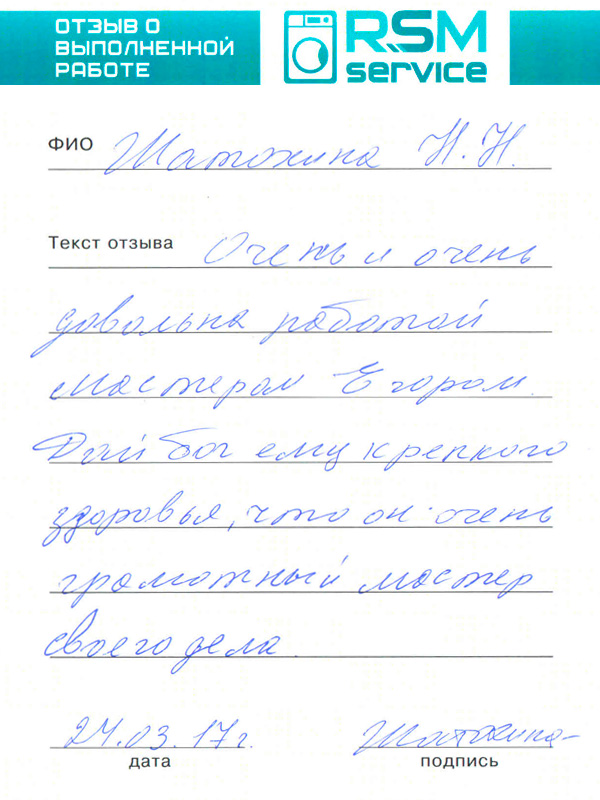 ОТЗЫВ О
ВЫПОЛНЕННОЙ
РАБОТЕ
RSM
service
ФИО Шатохина Н.Н.
Текст отзыва Очень и очень
довольна работой
мастером Егором.
Дай бог ему крепкого
здоровья, что он очень
грамотный мастер
своего дела
24.03.17г. Шатохина
дата подпись